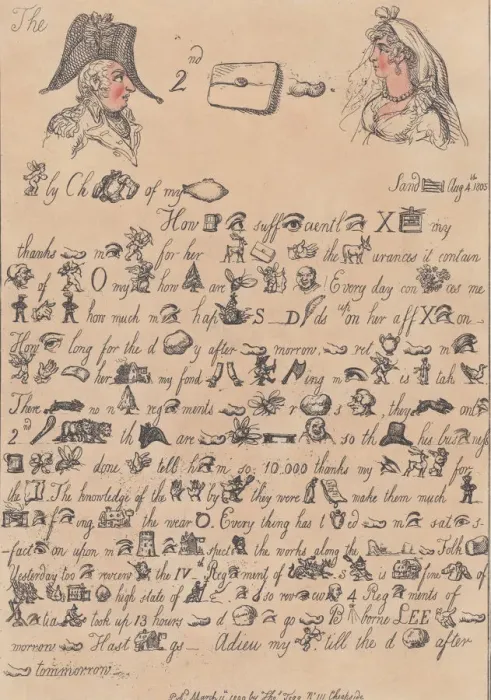 The
2nd
by Ch of my
Sand Aug 4th 1805
How suff cientl X my
thanks m for her the urances it contain
of O my how are Every day con ces me
how much m hap S D ds up on her aff X on
How long for the d y after morrow, ret m
her my fond ing m is tak
There no n reg ments r s , they ont
2nd th are so th his bus ness
done tell h m so; 10,000 thanks my for
the . The knowledge of the by they were make them much
f ing the wear O. Every thing has t ed m sat s
fact on upon m spect the works along the Folk
Yesterday too rev ew the IV th Reg ment of s is fine of
high state of so rev w 4 Reg ments of
at a took up 13 hours d go borne LEE
morrow Hast gs Adieu my till the d after
tommorrow